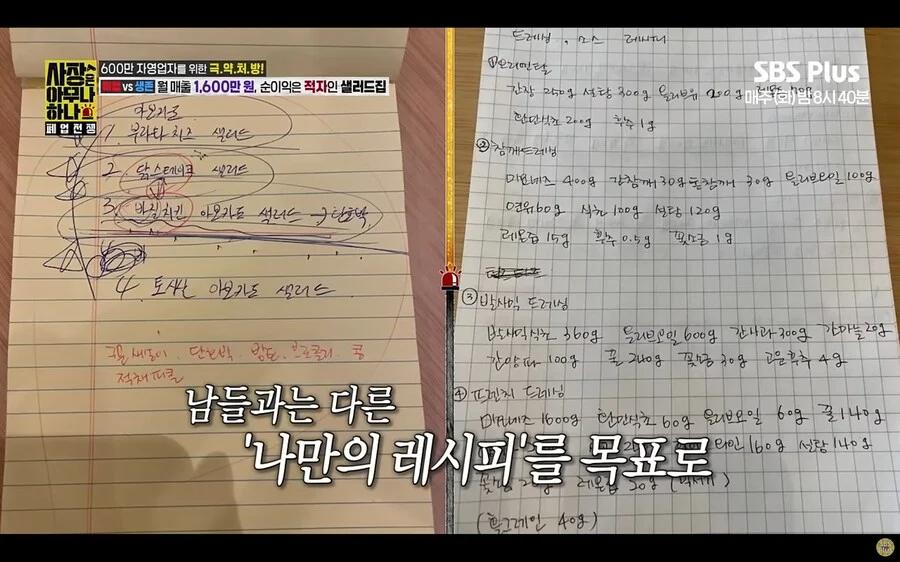 사장은
아무나
하나
폐업전쟁
600만 자영업자를 위한 극.약.처.방!
폐업 vs 생존 월 매출 1,600만 원, 순이익은 적자인 샐러드집
SBS Plus
매주 (화) 밤 8시 40분
아보카도
1. 부라타 치즈 샐러드
2. 닭스테이크 샐러드
3. 바질치킨 아보카도 샐러드 →
4. 아보카도 샐러드
단호박
적채피클
드레싱, 소스 레시피
① 오리엔탈
간장 250g 설탕 300g 올리브유
200g 후추 1g
② 참깨드레싱
마요네즈 400g 간참깨 30g 통참깨 30g 올리브오일 100g
연유 60g 식초 100g 설탕 120g
레몬즙 15g 후추 0.5g 꽃소금 1g
③ 발사믹 드레싱
발사믹식초 360g 올리브오일 600g 간사과 300g 간마늘 20g
간양파 100g 꿀 240g 꽃소금 30g 고운후추 4g
④ 프렌치 드레싱
마요네즈 1600g 60g 올리브오일 60g 꿀 140g
160g 설탕 140g
레몬즙 20g
(홀그레인 40g)
남들과는 다른
'나만의 레시피'를 목표로